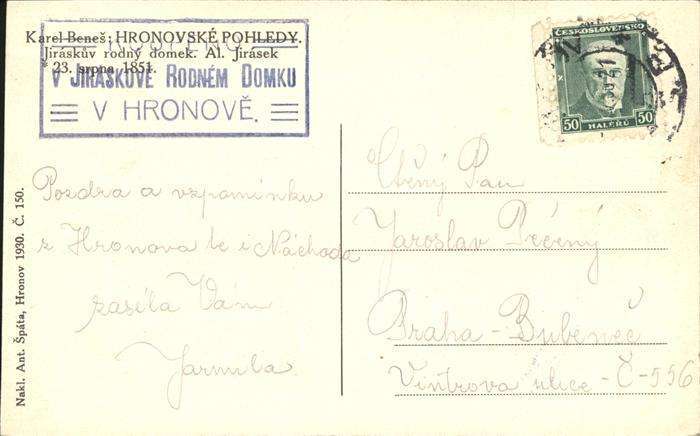 Karel Beneš: HRONOVSKÉ POHLEDY.
Jiráskův rodný domek. Al. Jirásek
*23. srpna 1851.
V JIRÁSKOVĚ RODNÉM DOMKU
V HRONOVĚ.
ČESKOSLOVENSKO
50 HALÉŘŮ 50
Pozdra a vzpomínku
z Hronova te i Náchoda
zasílá Vám
Jarmila.
Ctěný Pan
Jaroslav Pečený
Praha-Bubeneč
Vintrova ulice - Č-556
Nakl. Ant. Špáta, Hronov 1930. Č. 150.